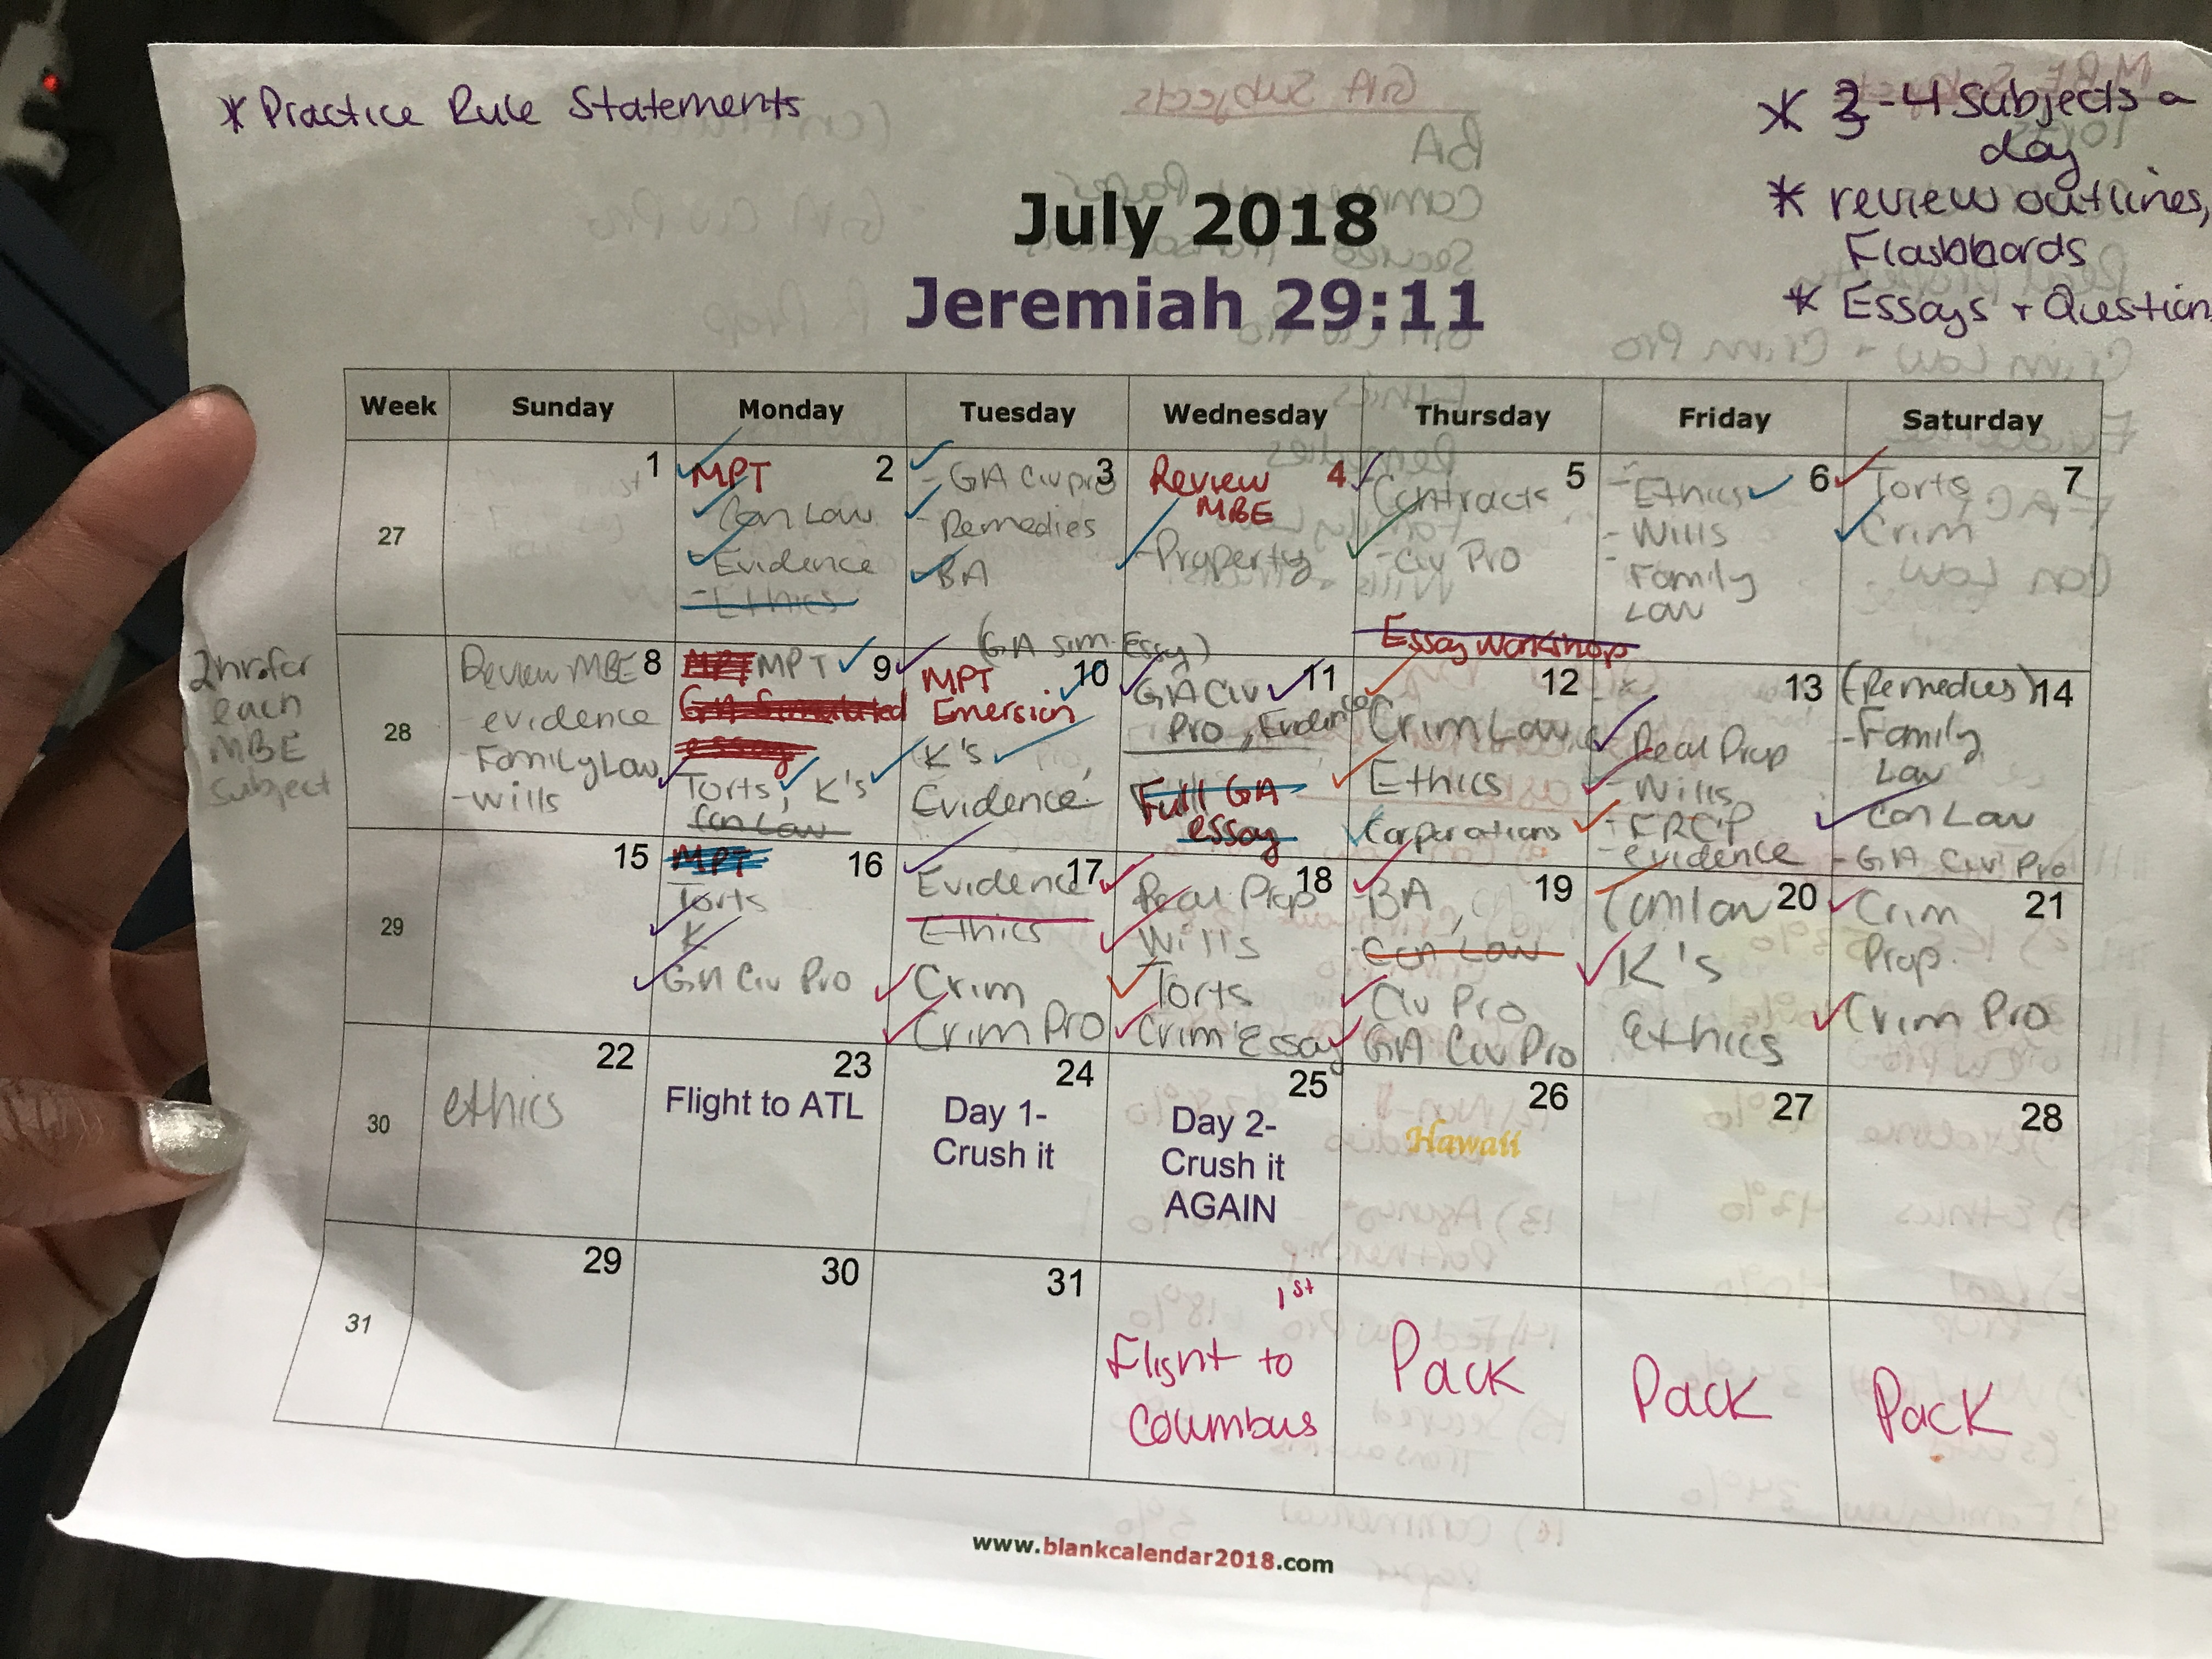 * Practice Rule Statements
* 3-4 Subjects a
day
* review outlines,
Flashcards
* Essays + Question
July 2018
Jeremiah 29:11
Week Sunday Monday Tuesday Wednesday Thursday Friday Saturday
27
1
2
MPT
Con Law
- Evidence
- Ethics
3
- GA Civ pro
- Remedies
- BA
4
Review
MBE
- Property
5
Contracts
- Civ Pro
6
- Ethics
- Wills
- Family
Law
7
Torts
Crim
2 hrs for
each
MBE
Subject
28
8
Review MBE
- evidence
- Family Law
- wills
9
MPT MPT
GA Simulated
essay
Torts, K's
Con Law
(GA sim. Essay)
10
MPT
Emersion
K's
Evidence
11
GA Civ
Pro, Evidence
Full GA
essay
Essay Workshop
12
Crim Law
Ethics
Corporations
13
Real Prop
- Wills
- FRCP
- evidence
14
(Remedies)
- Family
Law
Con Law
- GA Civ Pro
29
15
16
MPT
Torts
K
GA Civ Pro
17
Evidence
Ethics
Crim
Crim Pro
18
Real Prop
Wills
Torts
Crim Essay
19
BA,
Con Law
Civ Pro
GA Civ Pro
20
K's
Ethics
21
Crim
Prop.
Crim Pro
30
22
ethics
23
Flight to ATL
24
Day 1-
Crush it
25
Day 2-
Crush it
AGAIN
26
Hawaii
27
28
31
29
30
31
1st
Flight to
Columbus
Pack
Pack
Pack
www.blankcalendar2018.com